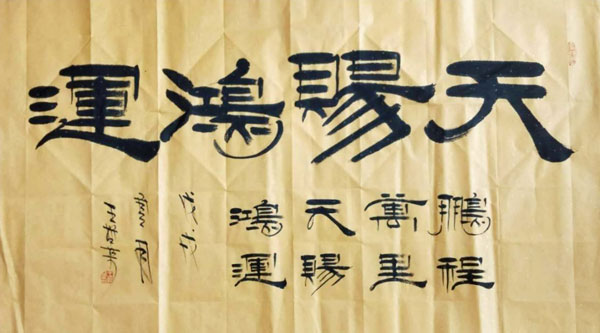 天賜鴻運
鵬程
萬里
天賜
鴻運